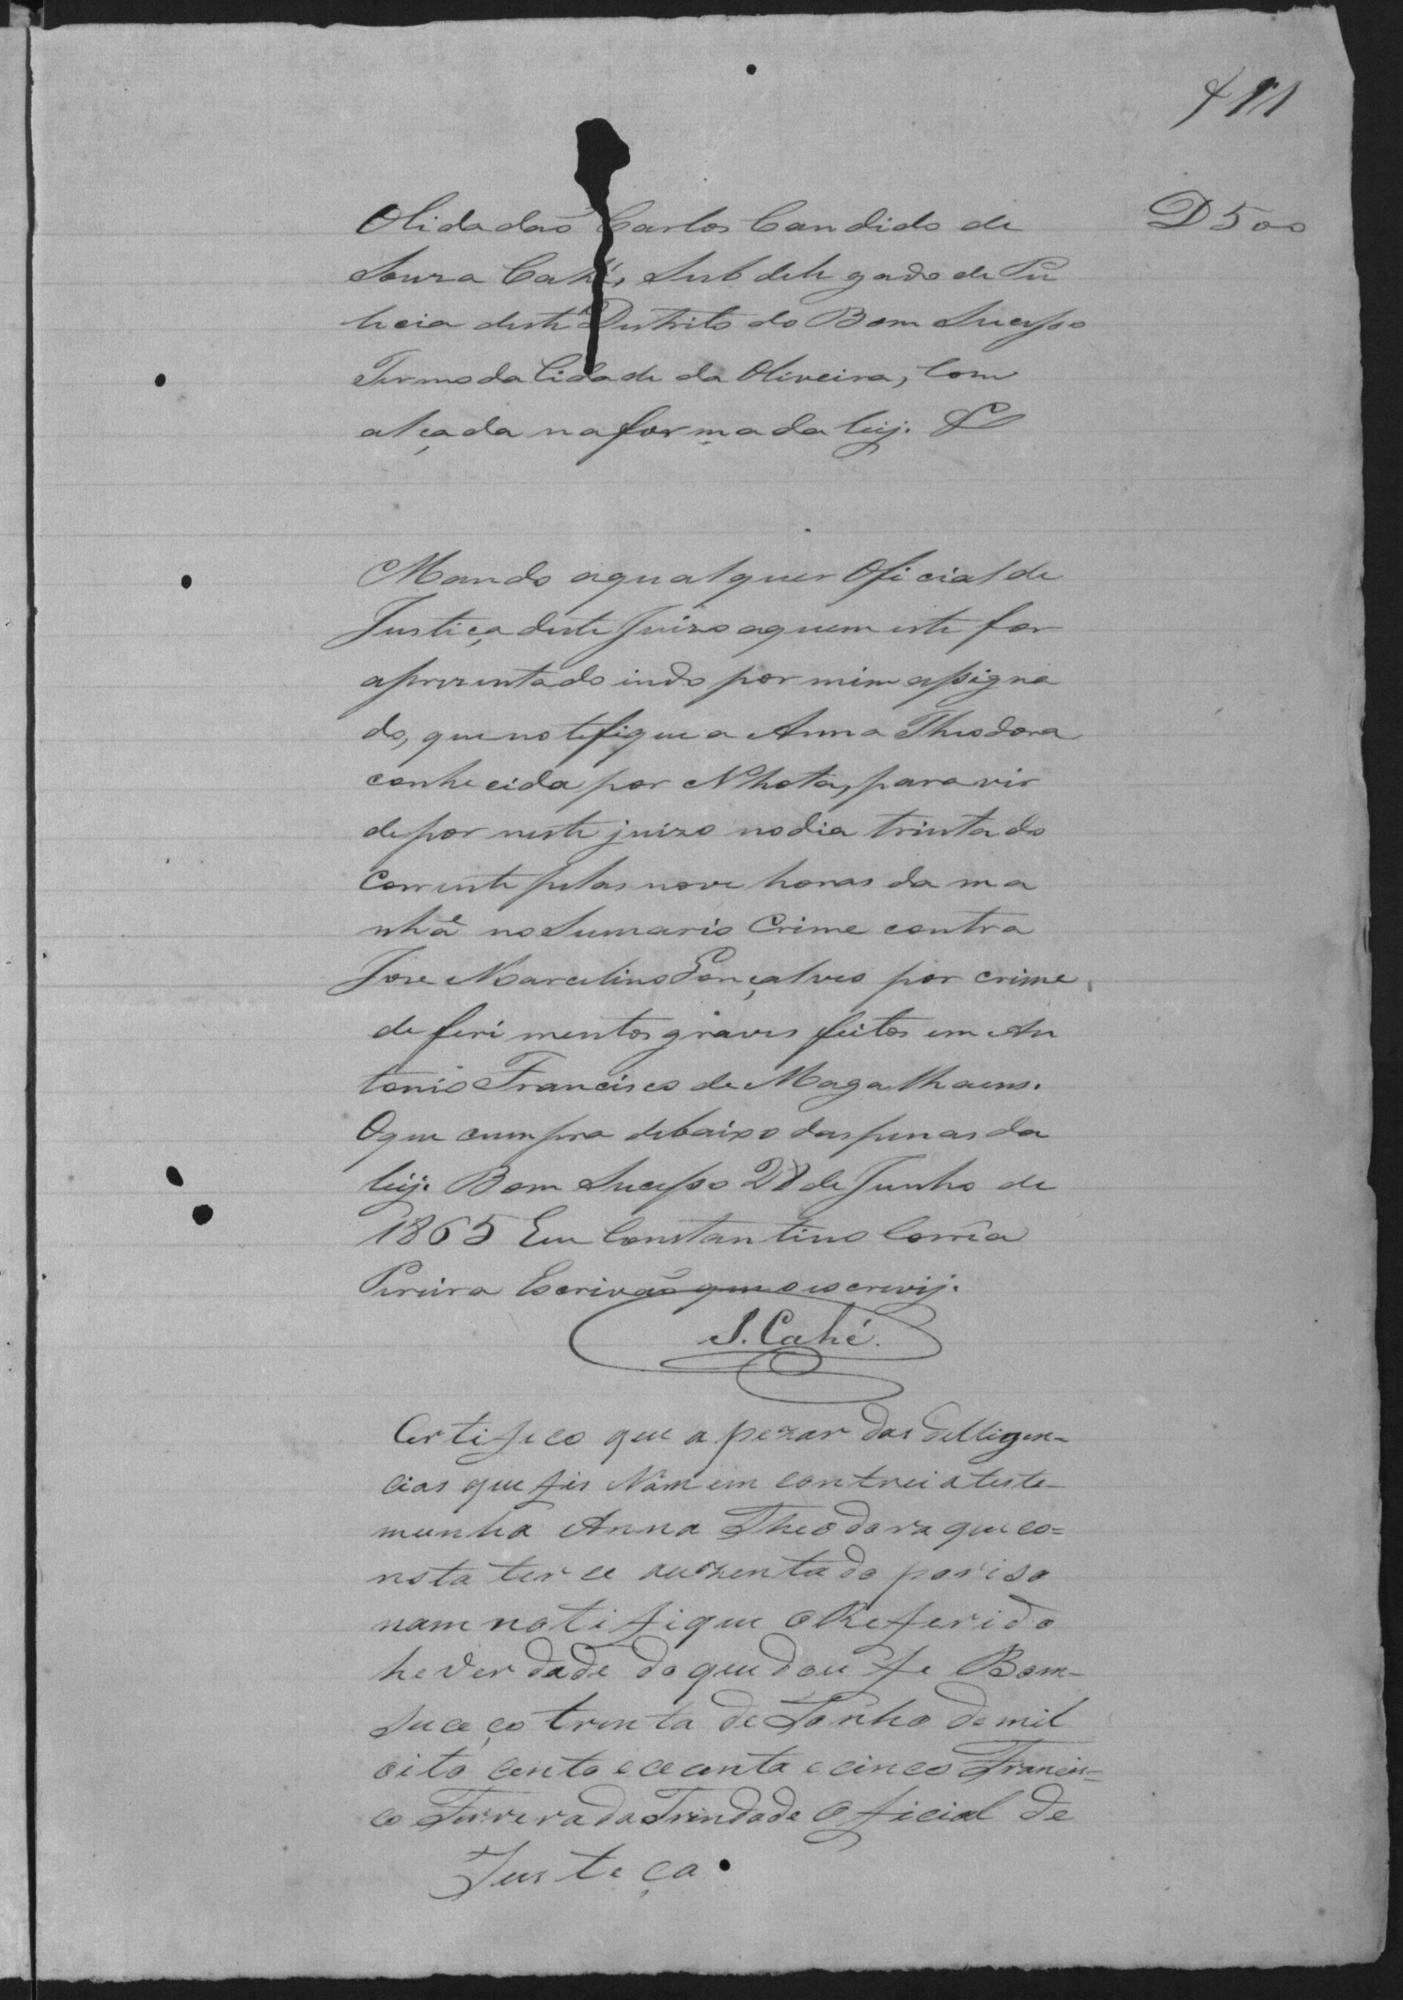 411
D 500
Ocidadão Carlos Candido de
Souza Cahé, Subdelegado de Pu
licia deste Destrito do Bom Sucesso
Termo da Cidade da Oliveira, Com
alçada na forma da leij. &
Mando aqualquer Oficial de
Justiça deste Juizo aquem este for
aprezentado indo por mim assigna
do, que notefique a Anna Theodora
conhecida por Nhota, para vir
depor neste juizo no dia trinta do
Corrente pelas nove horas da ma
nhã no Sumario Crime contra
Jose Marcelino Gonçalves por crime
de ferimentos graves feitos em An
tonio Francisco de Magalhaens.
Oque cumpra debaixo das penas da
leij. Bom Sucesso 28 de Junho de
1865 Eu Constantino Corrêa
Pereira Escrivão que o escrevij.
S. Cahé.
Certifeco que apezar das delligen-
cias que fis Nâm emcontrei a teste
munha Anna Theodora que co=
nsta terce auzentado por iso
nam notifique o Referido
he Verdade do que dou fe Bom-
Suceço trinta de Junho de mil
oito cento e cecenta e cinco Francis=
co Ferrera da Trindade Oficial de
Justeça.